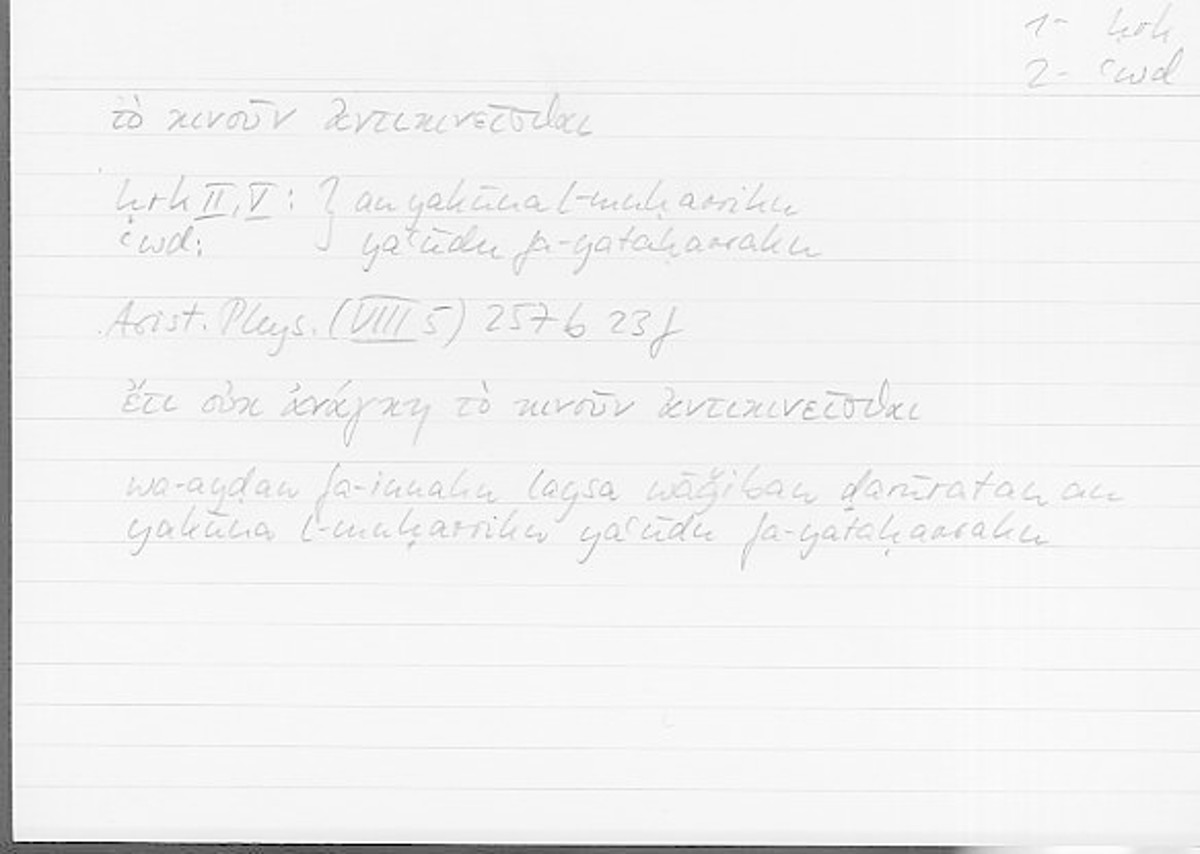 1- ḥrk
2- ʿwd
τὸ κινοῦν ἀντικινεῖσθαι
ḥrk II, V: } an yakūna l-muḥarriku
ʿwd: yaʿūdu fa-yataḥarraku
Arist. Phys. (VIII 5) 257 b 23 f
ἔτι οὐκ ἀνάγκη τὸ κινοῦν ἀντικινεῖσθαι
wa-ayḍan fa-innahu laysa wāǧiban ḍarūratan an
yakūna l-muḥarriku yaʿūdu fa-yataḥarraku